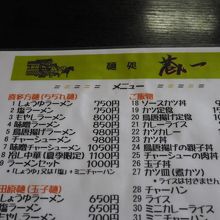 麺処 蔵一
メニュー
喜多方麺(ちぢれ麺)
1 しょうゆラーメン 700円
2 塩ラーメン 750円
3 もやしラーメン 800円
4 ネギラーメン 850円
5 鳥唐揚げラーメン 980円
6 味噌ラーメン 800円
7 チャーシューメン 950円
8 味噌チャーシューメン 1050円
9 冷し中華(夏季限定) 1100円
10 ラーメンセット 1000円
(しょうゆ又は塩)+ミニチャーハン
田舎麺(玉子麺)
しょうゆラーメン
ご飯物
18 ソースカツ丼
19 カツ定食
20 鳥唐揚げ定食
21 カレーライス
22 カツカレー
23 鳥唐揚げカレー
24 鳥唐揚げの親子丼
25 チャーシューの肉丼
26 玉子丼
27 カツ皿(煮カツ)
*ライスは付きません
28 チャーハン
29 ライス
30 ミニカレーライス
31 ミニチャー